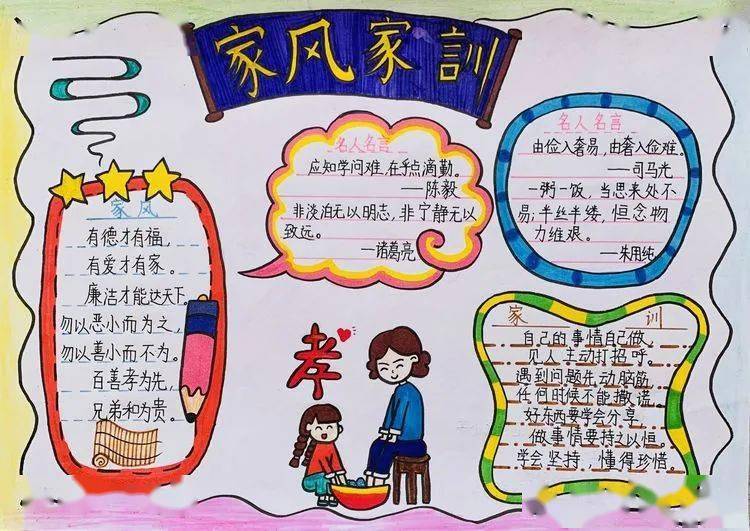 家风家訓
家风
有德才有福，
有爱才有家。
廉洁才能达天下。
勿以恶小而为之，
勿以善小而不为。
百善孝为先，
兄弟和为贵。
名人名言
应知学问难，在乎点滴勤。
——陈毅
非淡泊无以明志，非宁静无以
致远。
——诸葛亮
名人名言
由俭入奢易，由奢入俭难。
——司马光
一粥一饭，当思来处不
易；半丝半缕，恒念物
力维艰。
——朱用纯
孝
家 训
自己的事情自己做，
见人主动打招呼。
遇到问题先动脑筋，
任何时候不能撒谎。
好东西要学会分享，
做事情要持之以恒。
学会坚持，懂得珍惜。